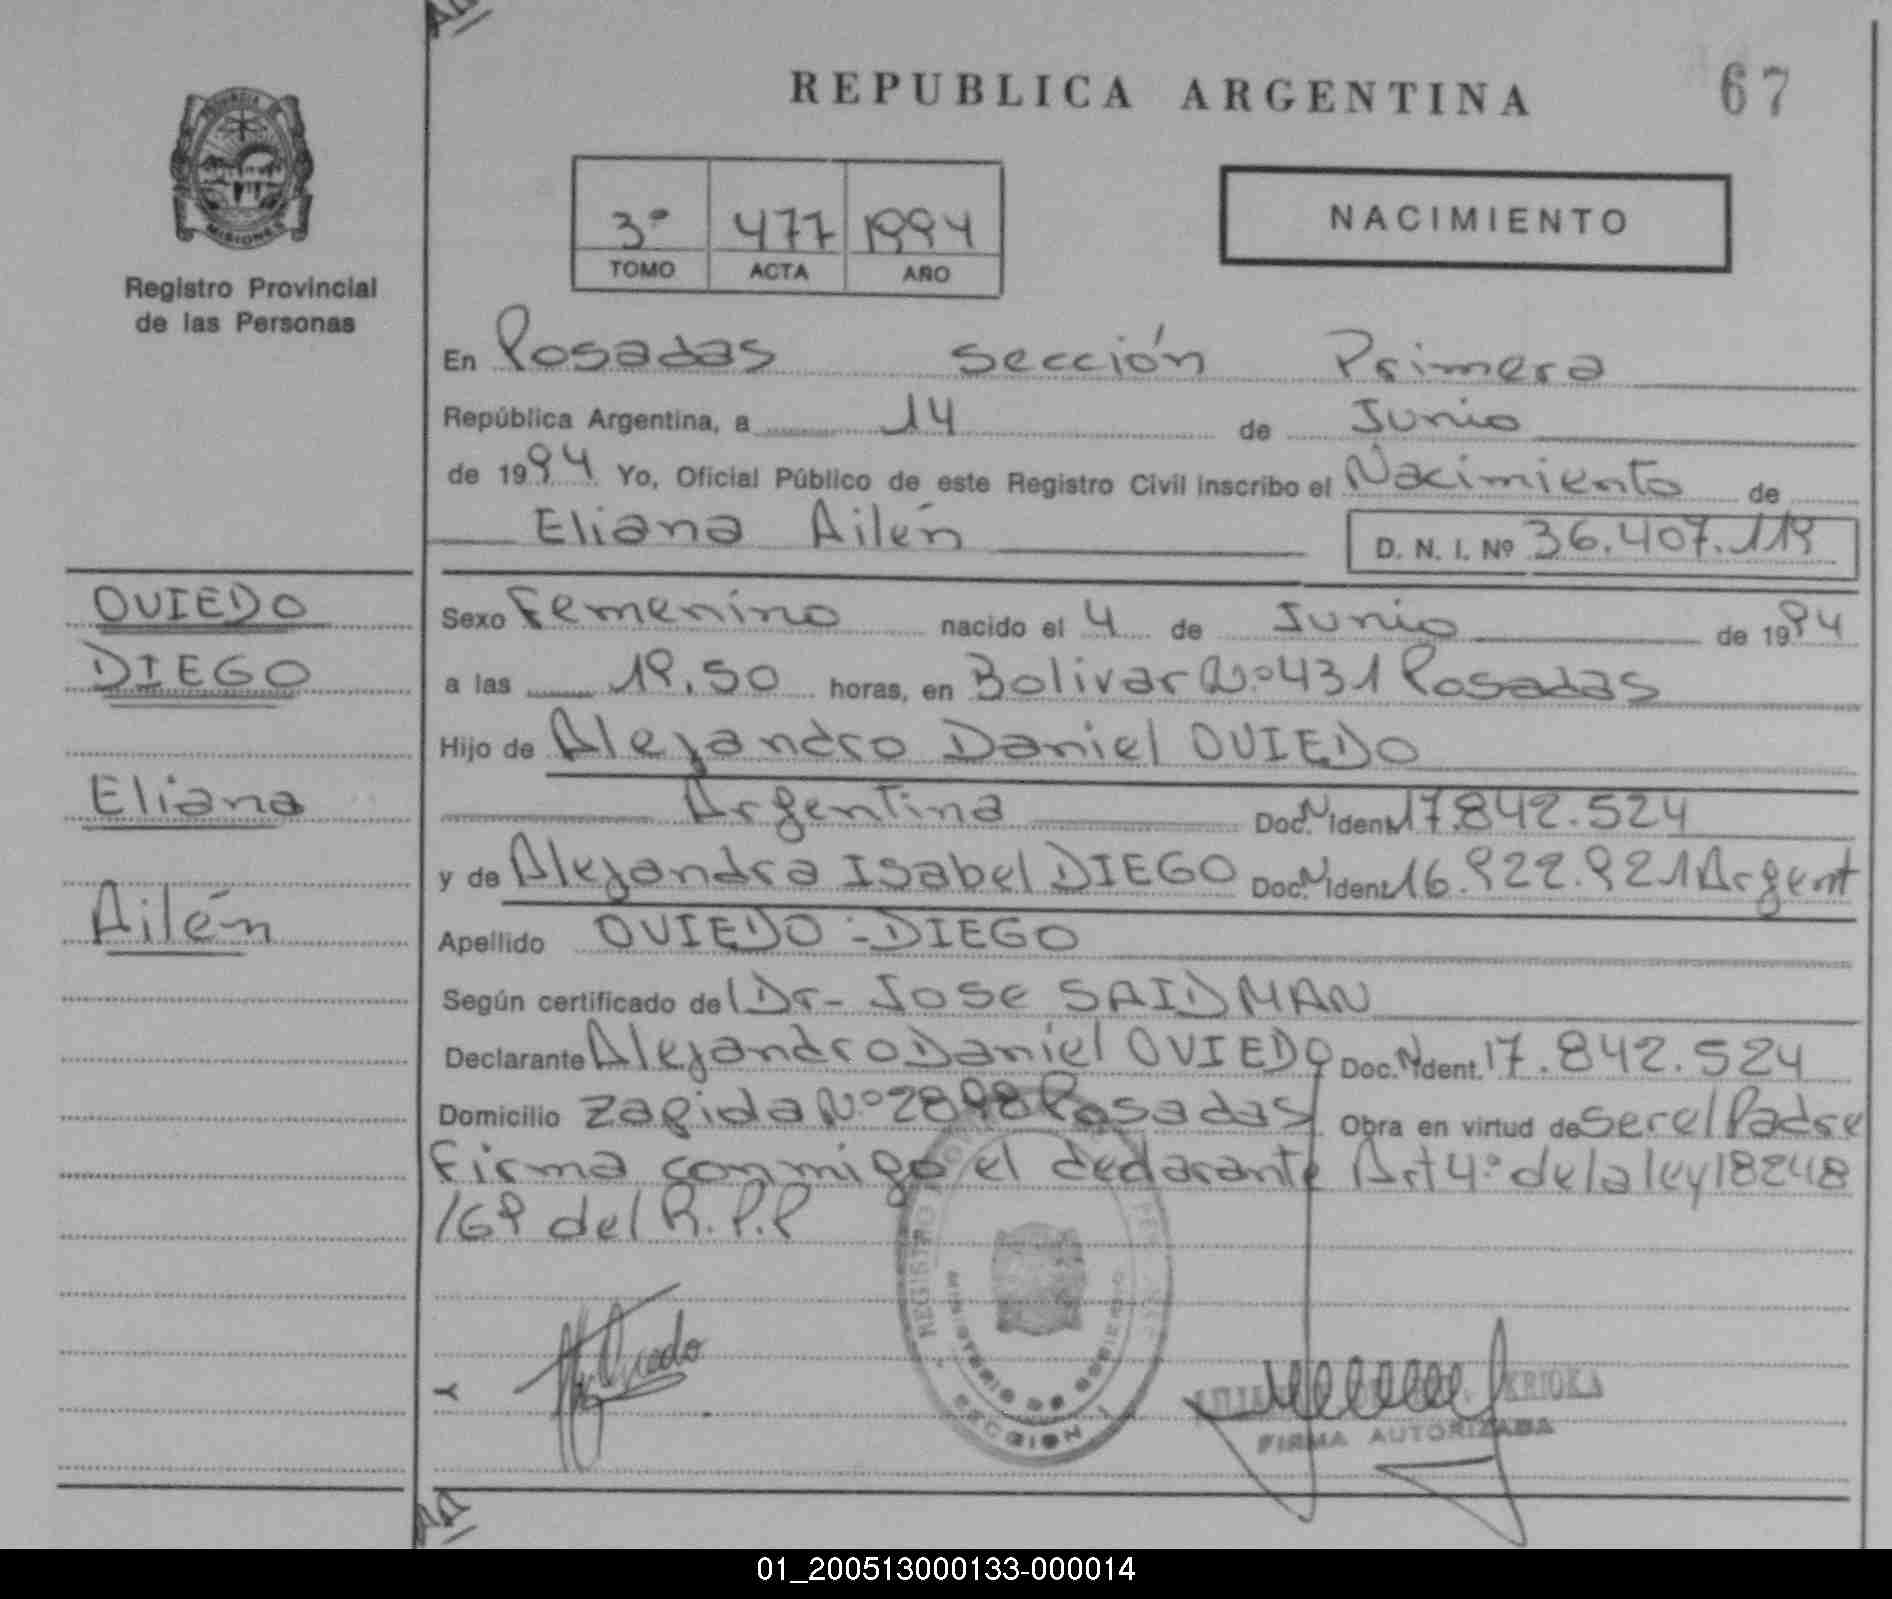 REPUBLICA ARGENTINA
67
PROVINCIA
MISIONES
Registro Provincial
de las Personas
3º 477 1994
TOMO ACTA AÑO
NACIMIENTO
En Posadas Sección Primera
República Argentina, a 14 de Junio
de 1994 Yo, Oficial Público de este Registro Civil inscribo el Nacimiento de
Eliana Ailén D. N. I. Nº 36.407.119
OVIEDO
DIEGO
Eliana
Ailén
Sexo Femenino nacido el 4 de Junio de 1994
a las 19,50 horas, en Bolivar Nº 431 Posadas
Hijo de Alejandro Daniel OVIEDO
Argentina Doc. N. Ident. 17.842.524
y de Alejandra Isabel DIEGO Doc. N. Ident. 16.922.921 Argent
Apellido OVIEDO - DIEGO
Según certificado del Dr - Jose SAIDMAN
Declarante Alejandro Daniel OVIEDO Doc. N. Ident. 17.842.524
Domicilio Nº 2898 Posadas Obra en virtud de ser el Padre
Firma conmigo el declarante Art 4º de la ley 18248
/69 del R.P.P
REGISTRO
MINISTERIO DE GOBIERNO
SECCION 1
FIRMA AUTORIZADA
01_200513000133-000014